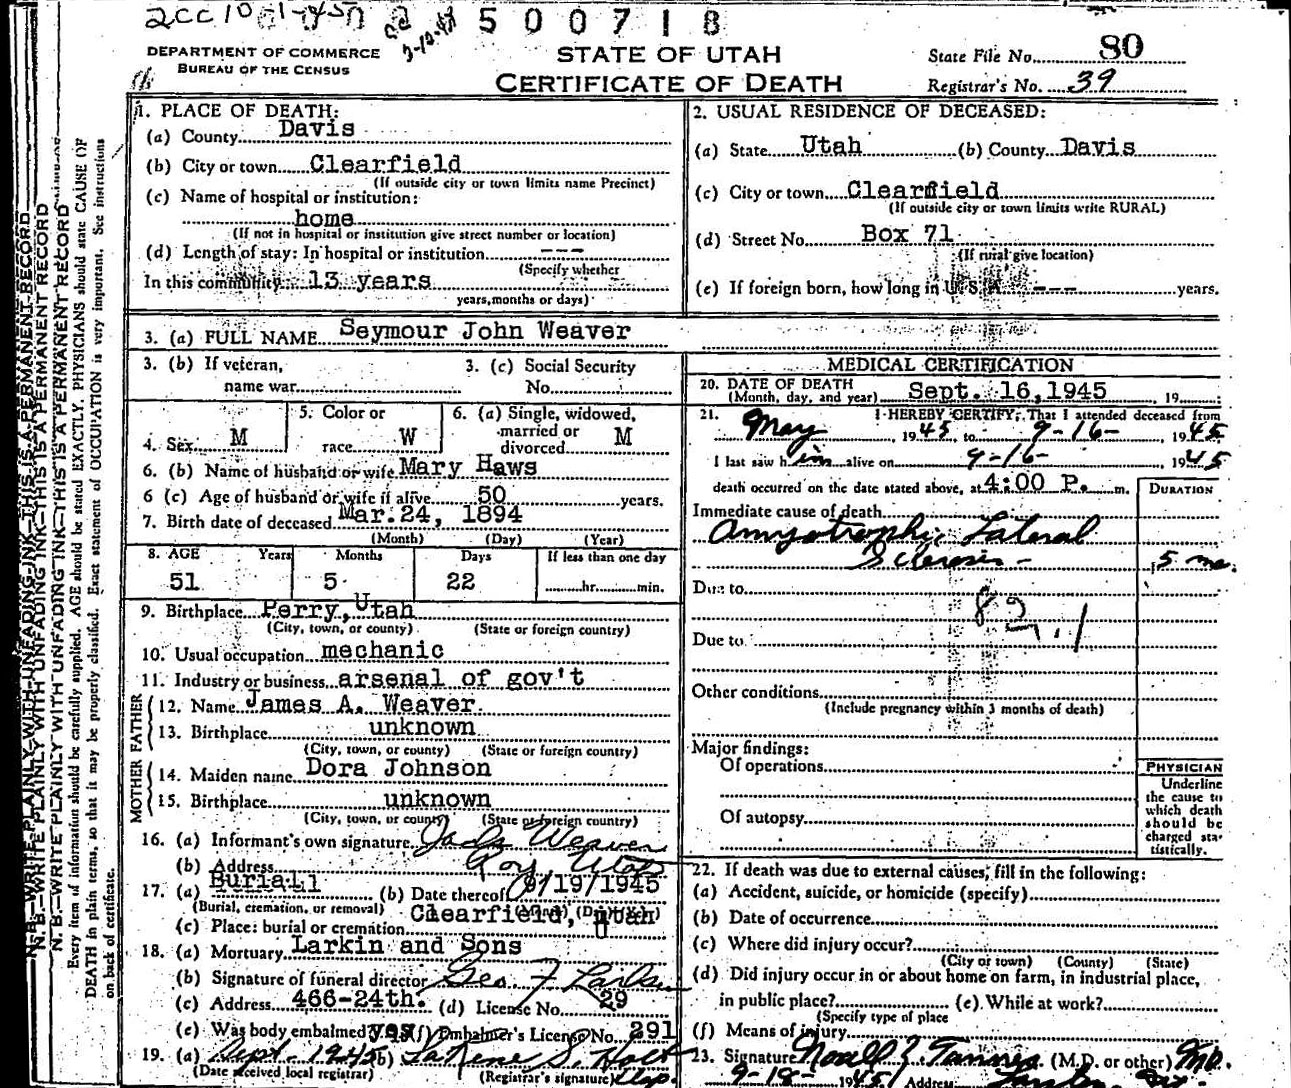 500718
DEPARTMENT OF COMMERCE
BUREAU OF THE CENSUS
STATE OF UTAH
CERTIFICATE OF DEATH
State File No. 80
Registrar's No. 39
N. B.—WRITE PLAINLY WITH UNFADING INK—THIS IS A PERMANENT RECORD
Every item of information should be carefully supplied. AGE should be stated EXACTLY. PHYSICIANS should state CAUSE OF
DEATH in plain terms, so that it may be properly classified. Exact statement of OCCUPATION is very important. See instructions
on back of certificate.
1. PLACE OF DEATH:
(a) County Davis
(b) City or town Clearfield
(If outside city or town limits name Precinct)
(c) Name of hospital or institution:
home
(If not in hospital or institution give street number or location)
(d) Length of stay: In hospital or institution ---
(Specify whether
In this community 13 years
years, months or days)
2. USUAL RESIDENCE OF DECEASED:
(a) State Utah (b) County Davis
(c) City or town Clearfield
(If outside city or town limits write RURAL)
(d) Street No. Box 71
(If rural give location)
(e) If foreign born, how long in U. S. A. --- years.
3. (a) FULL NAME Seymour John Weaver
3. (b) If veteran,
name war
3. (c) Social Security
No.
4. Sex M
5. Color or
race W
6. (a) Single, widowed,
married or
divorced M
6. (b) Name of husband or wife Mary Haws
6 (c) Age of husband or wife if alive 50 years.
7. Birth date of deceased Mar. 24, 1894
(Month) (Day) (Year)
8. AGE Years Months Days If less than one day
51 5 22 hr. min.
9. Birthplace Perry, Utah
(City, town, or county) (State or foreign country)
10. Usual occupation mechanic
11. Industry or business arsenal of gov't
FATHER
12. Name James A. Weaver
13. Birthplace unknown
(City, town, or county) (State or foreign country)
MOTHER
14. Maiden name Dora Johnson
15. Birthplace unknown
(City, town, or county) (State or foreign country)
16. (a) Informant's own signature Weaver
(b) Address Roy Utah
17. (a) Buriall (b) Date thereof 9/19/1945
(Burial, cremation, or removal)
(c) Place: burial or cremation Clearfield, Utah
18. (a) Mortuary Larkin and Sons
(b) Signature of funeral director Geo. F Larkin
(c) Address 466-24th. (d) License No. 29
(e) Was body embalmed? yes (f) Embalmer's License No. 291
19. (a) Sept. 1945 (b) LaRene S. Holt
(Date received local registrar) (Registrar's signature) Dep.
MEDICAL CERTIFICATION
20. DATE OF DEATH
(Month, day, and year) Sept. 16, 1945, 19
21. I HEREBY CERTIFY, That I attended deceased from
May 1945, to 9-16-, 1945
I last saw him alive on 9-16-, 1945
death occurred on the date stated above, at 4:00 P. m.
DURATION
Immediate cause of death
Amyotrophic Lateral
Sclerosis - 5 mo.
Due to
Due to
Other conditions
(Include pregnancy within 3 months of death)
Major findings:
Of operations
Of autopsy
PHYSICIAN
Underline
the cause to
which death
should be
charged sta-
tistically.
22. If death was due to external causes, fill in the following:
(a) Accident, suicide, or homicide (specify)
(b) Date of occurrence
(c) Where did injury occur?
(City or town) (County) (State)
(d) Did injury occur in or about home on farm, in industrial place,
in public place? (e) While at work?
(Specify type of place
(f) Means of injury
23. Signature Tanner (M.D. or other) MD.
9-18- 1945 Address